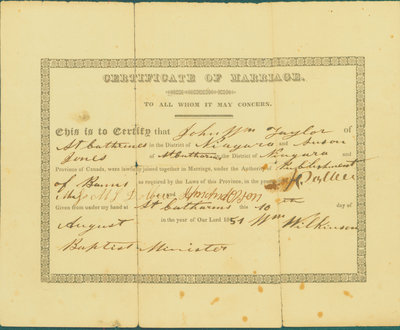 CERTIFICATE OF MARRIAGE.
TO ALL WHOM IT MAY CONCERN.
This is to Certify that John Wm Taylor of
St Catherines in the District of Niagara and Susan
Jones of St Catharines in the District of Niagara and
Province of Canada, were lawfully joined together in Marriage, under the Authority of Publishment
of Banns as required by the Laws of this Province, in the presence
Given from under my hand at St Catharines this day of
August in the year of our Lord 1851 Wm Wilkinson
Baptist Minister